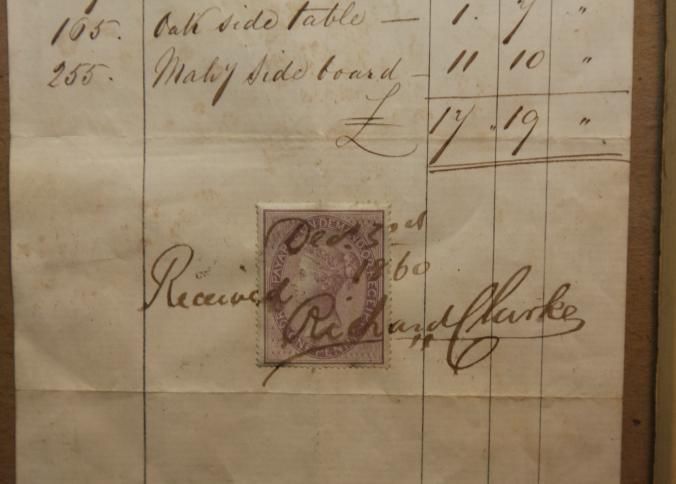 165. Oak side table — 1. 7 "
255. Mahy side board — 11 10 "
£ 17 " 19 "
Decr. 3rd
1860
Received Richard Clarke